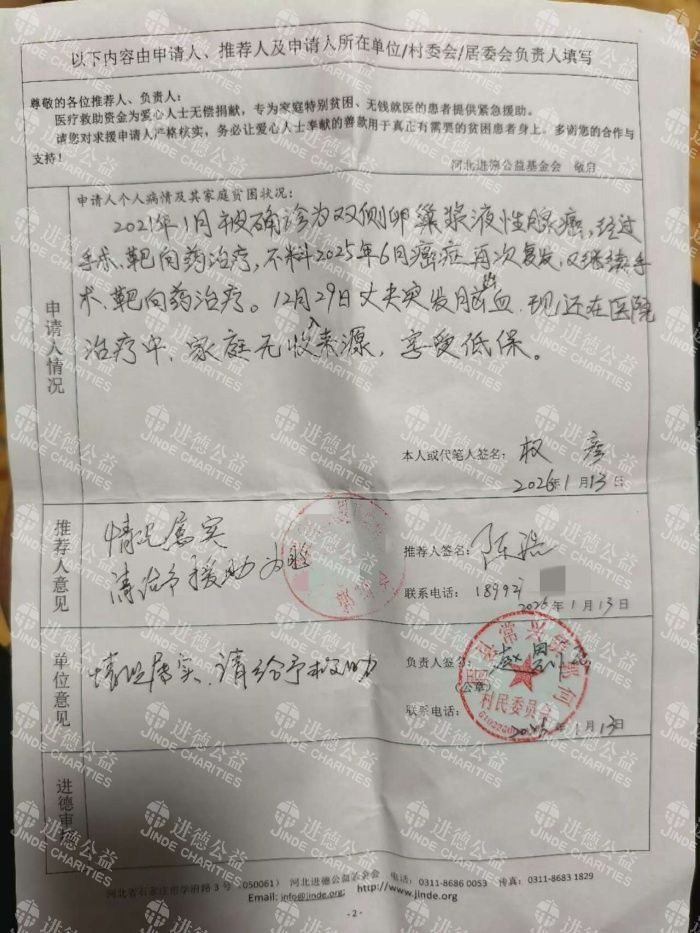 以下内容由申请人、推荐人及申请人所在单位/村委会/居委会负责人填写
尊敬的各位推荐人、负责人：
医疗救助资金为爱心人士无偿捐献，专为家庭特别贫困、无钱就医的患者提供紧急援助。
请您对求援申请人严格核实，务必让爱心人士奉献的善款用于真正有需要的贫困患者身上。多谢您的合作与
支持！
河北进德公益基金会 敬启
申请人情况
申请人个人病情及其家庭贫困状况：
2021年1月被确诊为双侧卵巢浆液性腺癌，经过
手术、靶向药治疗，不料2025年6月癌症再次复发，又继续手
术、靶向药治疗。12月29日丈夫突发脑出血，现还在医院
治疗中，家庭无收入来源，享受低保。
本人或代笔人签名：权彦
2026年1月13日
推荐人意见
情况属实
请给予援助为盼
推荐人签名：陈
联系电话：18992
2026年1月13日
单位意见
情况属实，请给予救助
负责人签名：
（公章）
村民委员会
联系电话：
2026年1月13日
进德审
河北省石家庄市学府路3号（050061）河北进德公益基金会 电话：0311-8686 0053 传真：0311-8683 1829
Email: info@jinde.org; http://www.jinde.org
- 2 -
进德公益
JINDE CHARITIES